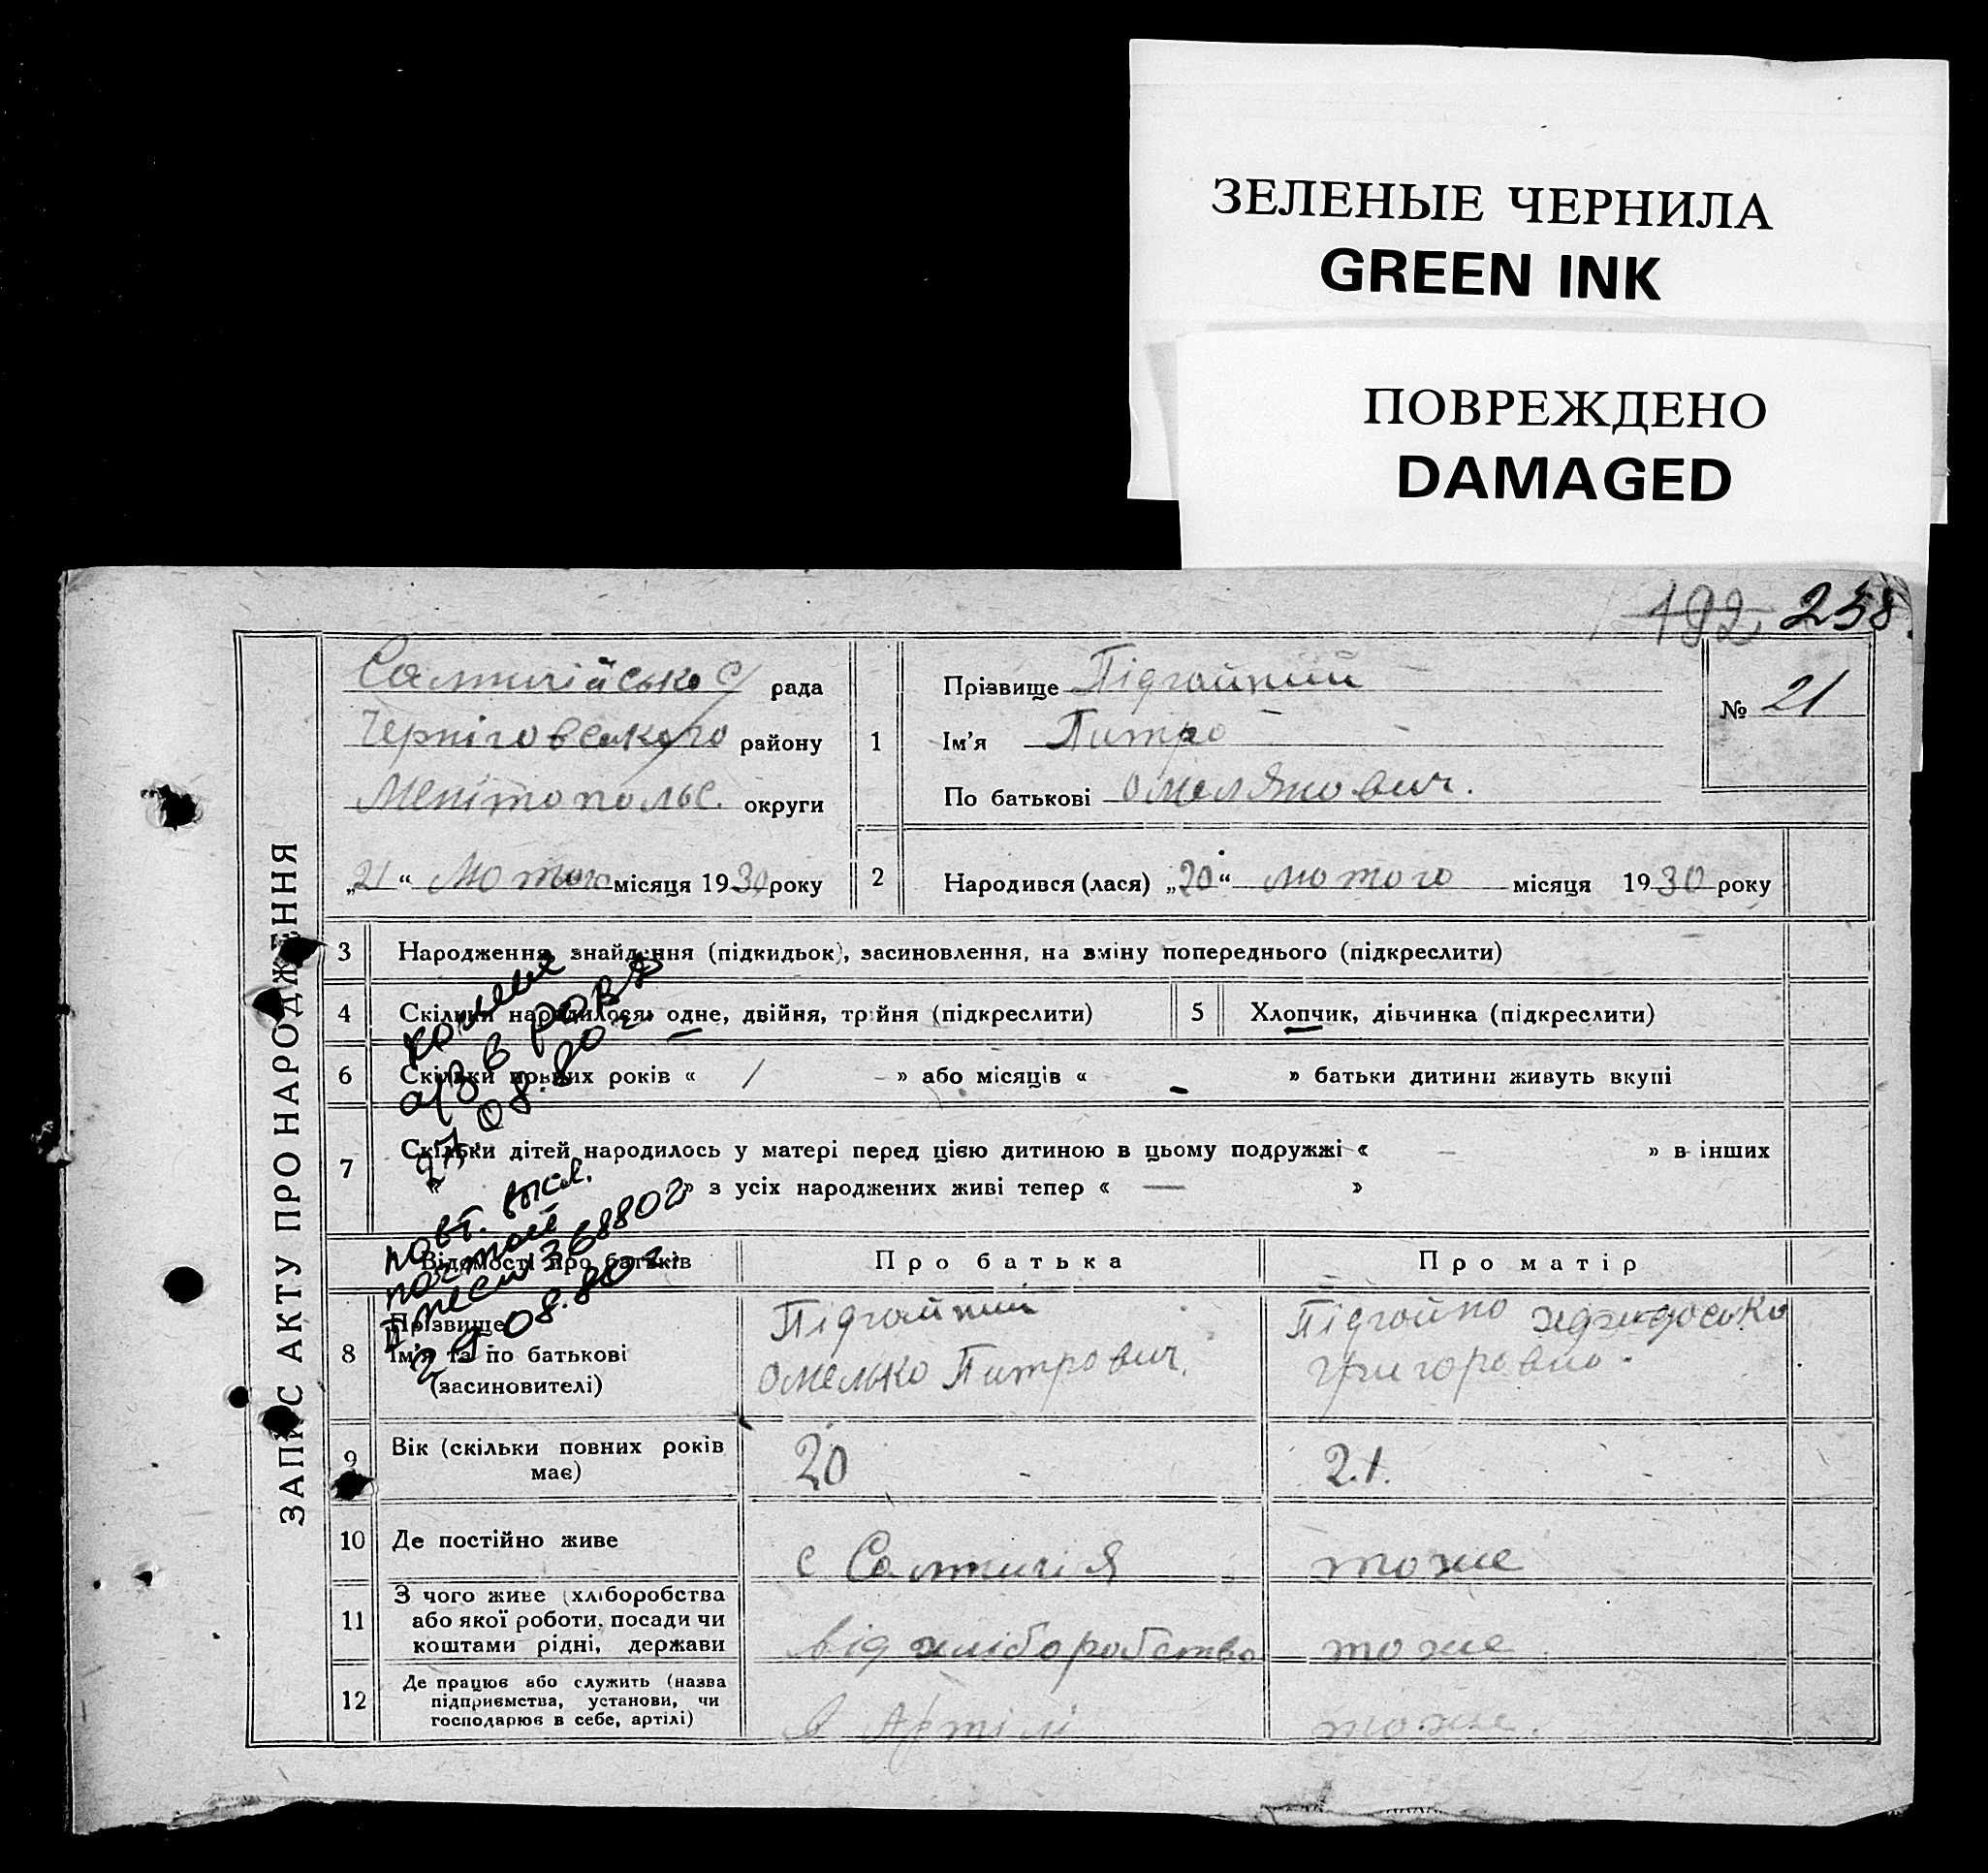 ЗЕЛЕНЫЕ ЧЕРНИЛА
GREEN INK
ПОВРЕЖДЕНО
DAMAGED
192 238.
ЗАПИС АКТУ ПРО НАРОДЖЕННЯ
Салтичійсько с/ рада
Черніговського району
Мелітопольс. округи
„21“ Лютого місяця 1930 року
1
Прізвище Підгайний
Ім'я Питро
По батькові Омелянович.
№ 21
2
Народився (лася) „20“ лютого місяця 1930 року
3 Народження, знайдення (підкидьок), засиновлення, на зміну попереднього (підкреслити)
4 Скільки народилося: одне, двійня, трійня (підкреслити)
5 Хлопчик, дівчинка (підкреслити)
6 Скільки повних років « / – » або місяців « – » батьки дитини живуть вкупі
7 Скільки дітей народилось у матері перед цією дитиною в цьому подружжі « – » в інших
« » з усіх народжених живі тепер « — »
а/з в
27.08.80г.
повт.
368802
29.08.80г.
Відомості про батьків
Про батька
Про матір
8 Прізвище
Ім'я та по батькові
(засиновителі)
Підгайний
Омелько Питрович.
Підгайно
Григоровно.
9 Вік (скільки повних років має)
20
21.
10 Де постійно живе
с Салтичія
тоже
11 З чого живе (хліборобства
або якої роботи, посади чи
коштами рідні, держави
від хліборобства
тоже
12 Де працює або служить (назва
підприємства, установи, чи
господарює в себе, артілі)
в Артілі
тоже.